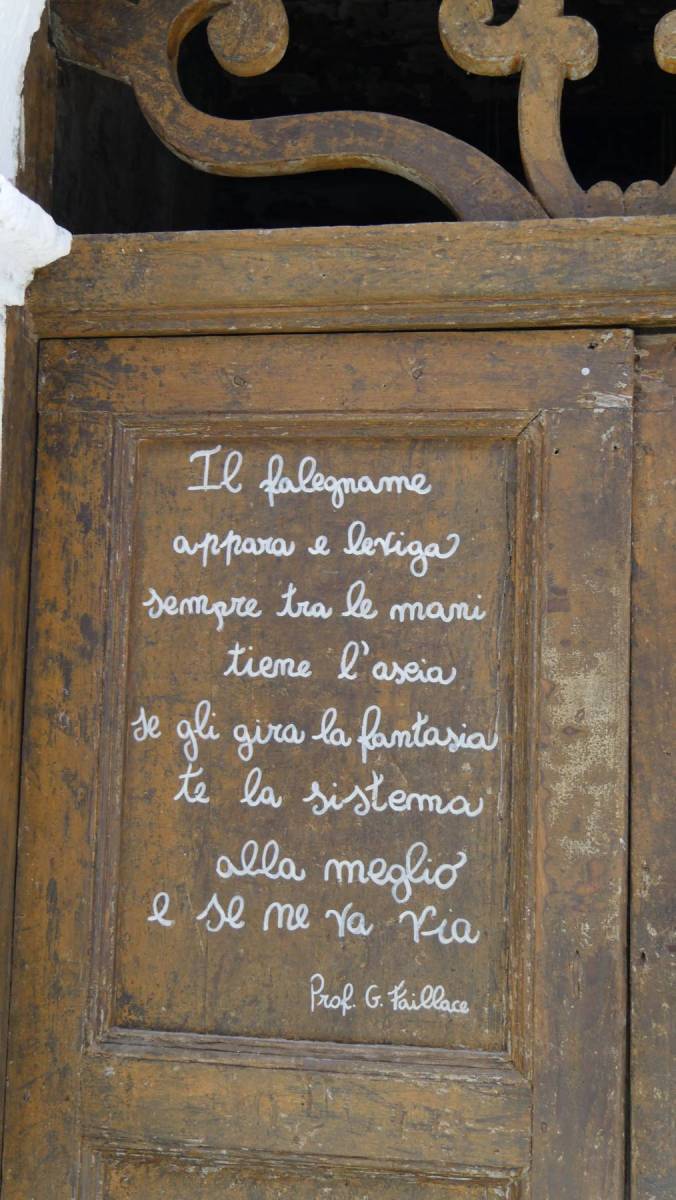 Il falegname
appara e leviga
sempre tra le mani
tiene l'ascia
se gli gira la fantasia
te la sistema
alla meglio
e se ne va via
Prof. G. Faillace